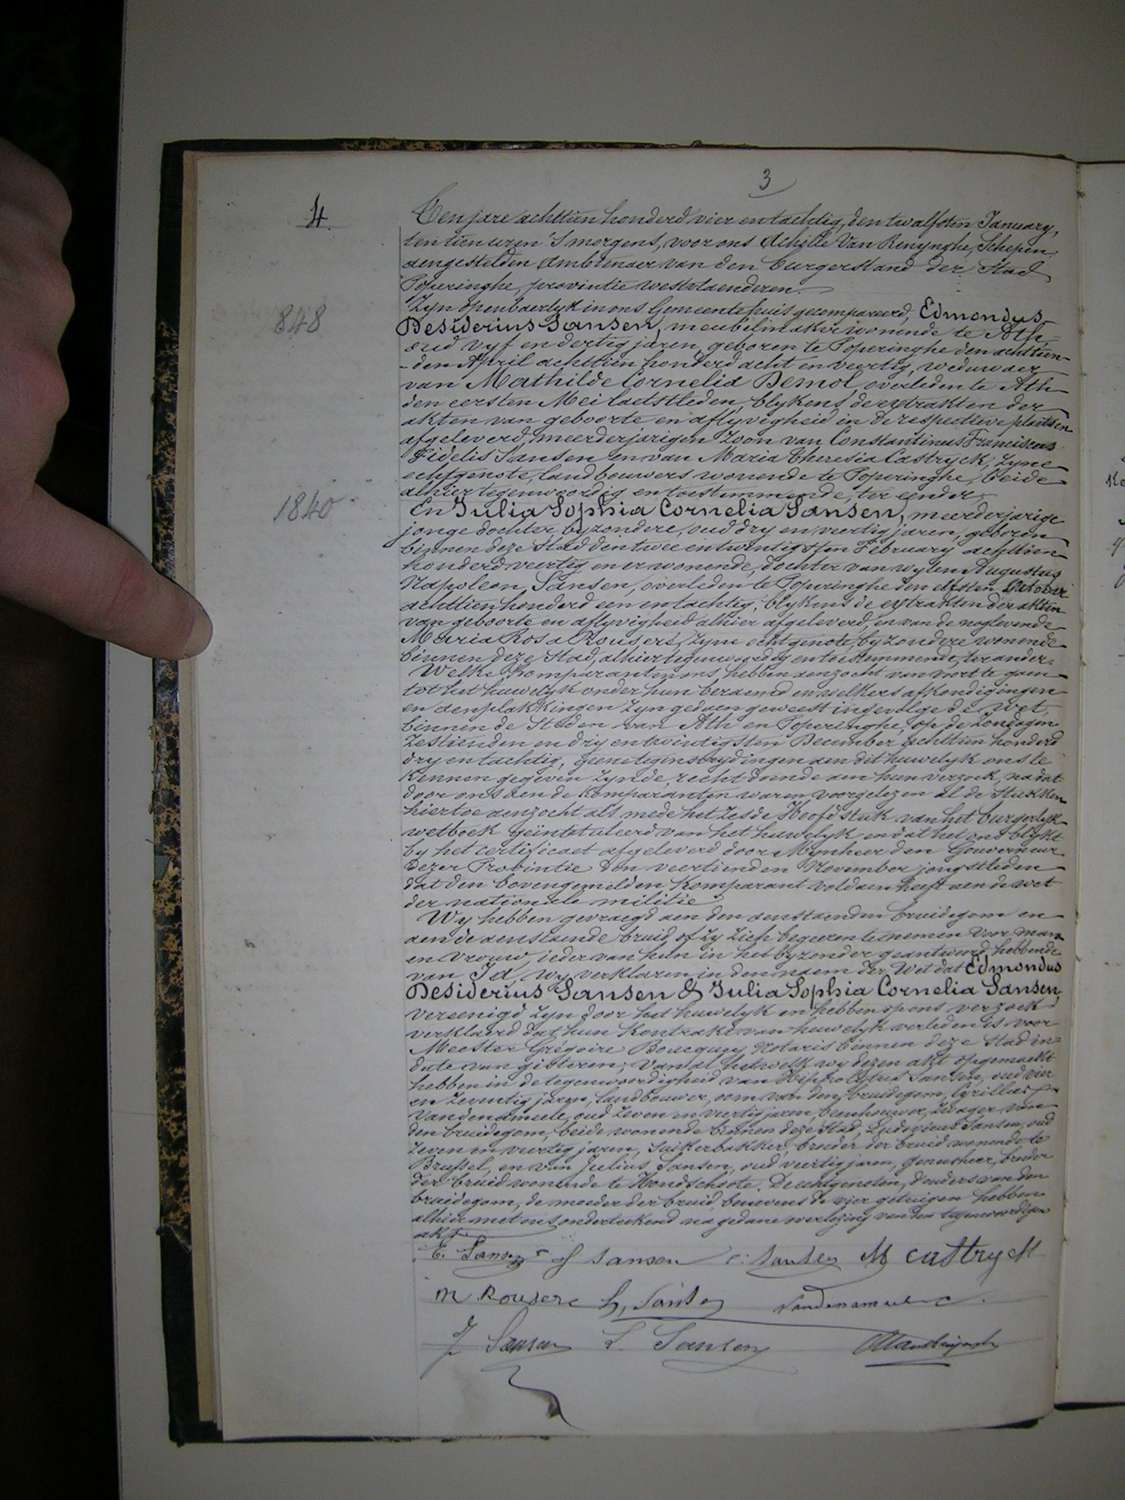 3
4.
Ten jare achttien honderd vier en tachtig, den twalfsten January,
ten tien uren 's morgens, voor ons Achille Van Renynghe, Schepen
aengestelden Ambtenaer van den burgerstand der Stad
Poperinghe, provintie westvlaenderen.
Zyn openbaerlyk in ons Gemeentehuis gecompareerd, Edmondus
848
Desiderius Sansen, meubelmaker wonende te Ath,
oud vyf en dertig jaren, geboren te Poperinghe den achttien-
-den April achttien honderd acht en veertig, weduwaer
van Mathilde Cornelia Demol overleden te Ath
den eersten Mei laetstleden, blykens de extrakten der
akten van geboorte en aflyvigheid in de respectieve plaetsen
afgeleverd, meerderjarigen zoon van Constantinus Franciscus
Fidelis Sansen en van Maria Theresia Castryck, zyne
echtgenote, landbouwers wonende te Poperinghe, beide
alhier tegenwoordig en toestemmende, ter eender
1840
En Julia Sophia Cornelia Sansen, meerderjarige
jonge dochter, byzondere, oud dry en veertig jaren, geboren
binnen deze Stad den twee en twintigsten February achttien
honderd veertig en er wonende, dochter van wylen Augustus
Napoleon Sansen, overleden te Poperinghe den elfsten October
achttien honderd een en tachtig, blykens de extrakten der akten
van geboorte en aflyvigheid alhier afgeleverd, en van de noglevende
Maria Rosa Rousere, zyne echtgenote, byzondere wonende
binnen deze Stad, alhier tegenwoordig en toestemmende, ter ander.
Welke komparanten ons hebben aenzocht van voort te gaen
tot het huwelyk onder hun beraemd en welkers afkondigingen
en aenplakkingen zyn gedaen geweest ingevolge de wet,
binnen de Steden van Ath en Poperinghe, op de zondagen
zestienden en dry en twintigsten December achttien honderd
dry en tachtig, geene tegenstrydingen aen dit huwelyk ons te
kennen gegeven zynde, recht doende aen hun verzoek, na dat
door ons aen de komparanten waren voorgelezen al de stukken
hiertoe aenzocht als mede het zesde Hoofdstuk van het burgerlyk
wetboek geintituleerd van het huwelyk en dat het ons blykt
by het certificaet afgeleverd door Mynheer den Gouverneur
dezer Provintie den veertienden November jongstleden
dat den bovengemelden komparant voldaen heeft aen de wet
der nationale militie
Wy hebben gevraegd aen den aenstaenden bruidegom en
aen de aenstaende bruid of zy zich begeeren te nemen voor man
en vrouw, ieder van hun in het byzonder geantwoord hebbende
van Ja, wy verklaren in den naem der Wet dat Edmondus
Desiderius Sansen & Julia Sophia Cornelia Sansen,
vereenigd zyn door het huwelyk en hebben op ons verzoek
verklaerd dat hun kontrakt van huwelyk verleden is voor
Meester Grégoire Boucquey Notaris binnen deze Stad in
date van gisteren; van al hetwelk wy dezen akt opgemaekt
hebben in de tegenwoordigheid van Hippolytus Sansen, oud vier
en zeventig jaren, landbouwer, oom van den bruidegom, Cyrillus
Vandenameele, oud zeven en veertig jaren, beenhouwer, zwager van
den bruidegom, beide wonende binnen deze Stad, Ludovicus Sansen, oud
zeven en veertig jaren, Suikerbakker, broeder der bruid wonende te
Brussel, en van Julius Sansen, oud veertig jaren, geneesheer, broeder
der bruid wonende te Hondschoote. De echtgenoten, d'ouders van den
bruidegom, de moeder der bruid, benevens de vier getuigen hebben
alhier met ons onderteekend na gedane voorlezing van den tegenwoordigen
akt.
E. Sansen J Sansen C. Sansen M Castryck
M Rousere h, Sansen Vandenameele
J Sansen L. Sansen